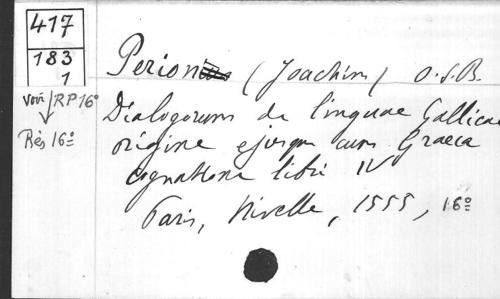 417
183
1
voir RP 16º
Rés 16º
Perion (Joachim) O.S.B.
Dialogorum de linguae Gallicae
origine ejusque cum Graeca
cognatione libri IV
Paris, Nivelle, 1555, 16º